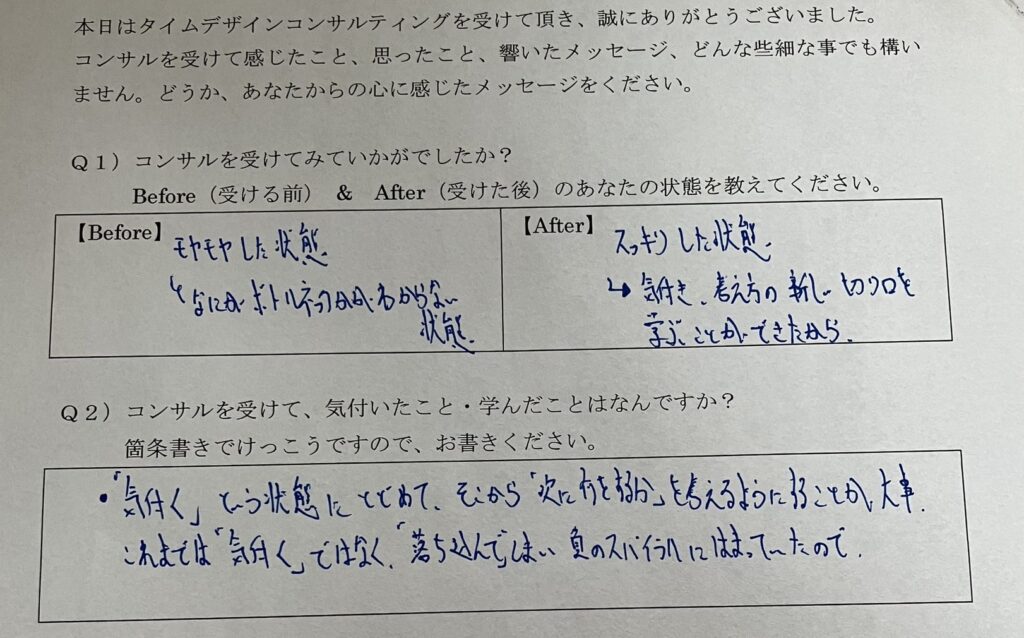 本日はタイムデザインコンサルティングを受けて頂き、誠にありがとうございました。
コンサルを受けて感じたこと、思ったこと、響いたメッセージ、どんな些細な事でも構い
ません。どうか、あなたからの心に感じたメッセージをください。
Ｑ１）コンサルを受けてみていかがでしたか？
Before（受ける前） ＆ After（受けた後）のあなたの状態を教えてください。
【Before】
モヤモヤした状態
↳なにがボトルネックかがわからない
状態
【After】
スッキリした状態
↳気付き、考え方の新しい切り口を
学ぶことができたから。
Ｑ２）コンサルを受けて、気付いたこと・学んだことはなんですか？
箇条書きでけっこうですので、お書きください。
・「気付く」という状態にとどめて、そこから「次に何をするか」を考えるようにすることが大事。
これまでは「気付く」ではなく、「落ち込んで」しまい負のスパイラルにはまっていたので。